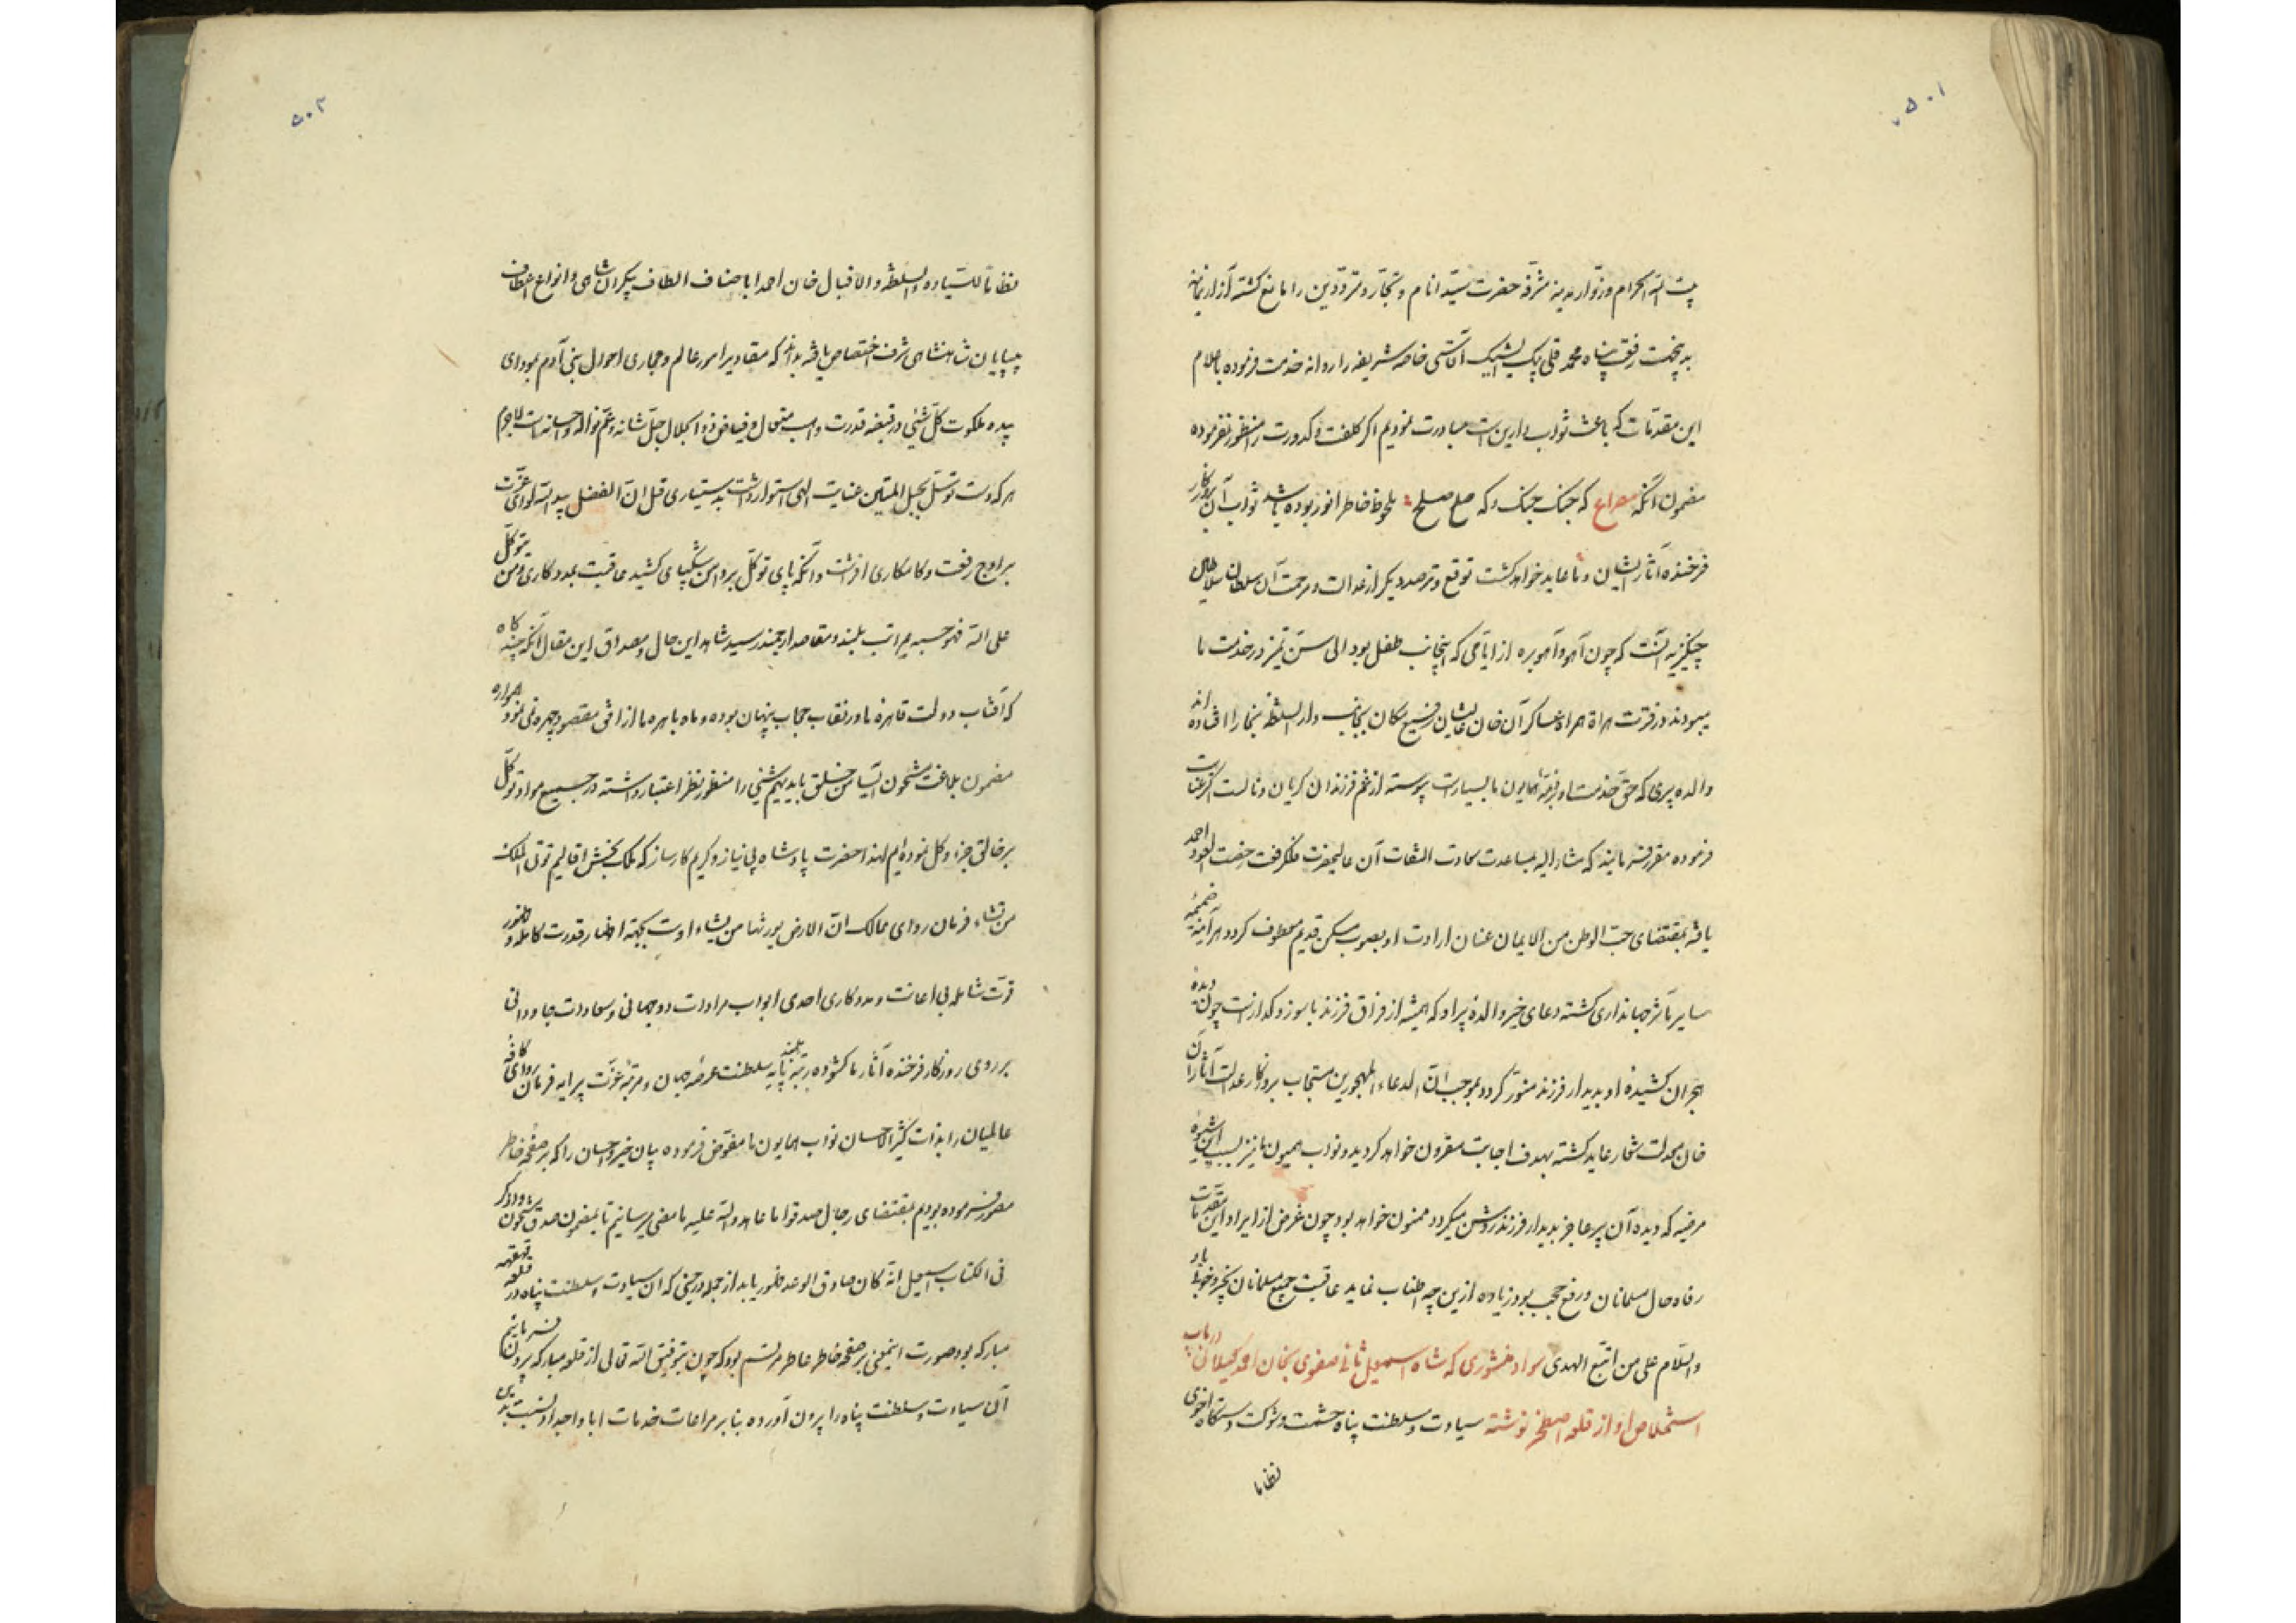 ۵۰۱
بیت الله الحرام و زوّار مدینه مشرّفه حضرت سیّد انام و تجّار و متردّدین را مانع کشته
بدین جهت رفعت پناه محمد قلی بیک ایشیک آقاسی خاصه شریفه را روانه خدمت فرموده باعلام
این مقدّمات که باعث ثواب دارین است مبادرت نمودیم اکر کلفت و کدورت منظور نفرموده
مضمون آنکه مصراع که جنک جنک و که صلح صلح ملحوظ خاطر انور بوده باشد ثواب آن بروزکار
فرخنده آثار ایشان و ما عاید خواهد کشت توقع و ترصد دیکر از عدالت و مرحمت آن سلطان سلاطین
چنکیزیه آنست که چون آهو و آهو بره از ایامی که اینجانب طفل بود الی سنّ تمیز در خدمت ما
میبودند و در فترت هراة همراه عساکر آن خان عالیشان فسیح مکان بجانب دار السلطنه بخارا افتاده اند
والده پیری که حقّ خدمت او بر ذمّه همایون ما بسیارست پیوسته از غم فرزندان کریان و نالست اکر عنایت
فرموده مقرر فرمایند که مشار الیه بمساعدت سعادت التفات آن عالیحضرت فلک رفعت رخصت العود احمد
یافته بمقتضای حبّ الوطن من الایمان عنان ارادت او بصوب مسکن قدیم معطوف کردد هر آینه ضمیمه
سایر مآثر جهانداری کشته دعای خیر والده پیر او که همیشه از فراق فرزند با سوز و کدازست چون دیده
هجران کشیده او بدیدار فرزند منوّر کردد بموجب انّ الدعاء المهجورین مستجاب بروزکار عدالت آثار آن
خان معدلت شعار عاید کشته بهدف اجابت مقرون خواهد کردید و نواب همیون ما نیز بسبب این شیوه
مرضیه که دیده آن پیر عاجز بدیدار فرزند روشن میکردد ممنون خواهد بود چون غرض از ایراد این مقدّمات
رفاه حال مسلمانان و رفع حجب بود زیاده ازین چه اطناب نماید عاقبت جمیع مسلمانان بخیر و خوبی باد
والسّلام علی من اتبع الهدی سواد منشوری که شاه اسمعیل ثانی صفوی بخان احمد کیلانی در باب
استخلاص او از قلعه اصطخر نوشته سیادت و سلطنت پناه حشمت و شوکت دستکاه اخوی
نظاما
۵۰۲
نظاما للسیاده و السلطنه و الاقبال خان احمد باصناف الطاف بیکران شاهی و انواع اعطاف
بیپایان شاهنشاهی شرف اختصاص یافته بداند که مقادیر امور عالم و مجاری احوال بنی آدم بمودای
بیده ملکوت کلّ شیٔ در قبضه قدرت واهب متعال و فیاض ذو الجلال جلّ شانه و عمّ نواله و احسانه است لاجرم
هر که دست توسّل بحبل المتین عنایت الهی استوار داشت بدستیاری قل انّ الفضل بید الله لوای عزّت
بر اوج رفعت و کامکاری افراشت و آنکه پای توکّل بر دامن شکیبای کشید عاقبت بمددکاری و من یتوکّل
علی الله فهو حسبه بمراتب بلند و مقاصد ارجمند رسید شاهد این حال و مصداق این مقال آنکه چند کاه
که آفتاب دولت قاهره ما در نقاب حجاب پنهان بوده و ماه باهره ما از افق مقصود چهره نمی نمود همواره
مضمون بلاغت مشحون الیاس من خلق باید بهم شیٔ را منظور نظر اعتبار داشته در جمیع مواد توکّل
بر خالق جزء و کل نموده ایم لهذا حضرت پادشاه بی نیاز و کریم کارساز که ملک بخش اقالیم توتی الملک
من تشاء فرمان روای ممالک انّ الارض یورثها من یشاء اوست بجهته اظهار قدرت کامله و ظهور
قوّت شامله بی اعانت و مددکاری احدی ابواب مرادات دو جهانی و سعادت جاودانی
بر روی روزکار فرخنده آثار ما کشوده رتبه بلند پایه سلطنت عرصه جهان و مرتبه عزّت پیرایه فرمان روای کافه
عالمیان را بذات کثیر الاحسان نواب همایون ما مفوّض فرموده پیان خیر و احسان را که بر صفحه خاطر
مصوّر فرموده بودیم بمقتضای رجال صدقوا ما عاهدوا الله علیه بامضی میرسانیم تا بمضمون صدق مشحون و اذکر
فی الکتاب اسمعیل انّه کان صادق الوعد ظهور یابد از جمله در حینی که آن سیادت و سلطنت پناه در قلعه قهقهه
مبارکه بود صورت اینمعنی بر صفحه خاطر عاطر مرتسم بود که چون بتوفیق الله تعالی از قلعه مبارکه بیرون فرمائیم
آن سیادت و سلطنت پناه را بیرون آورده بنا بر مراعات خدمات ابا و اجداد او نسبت بدین